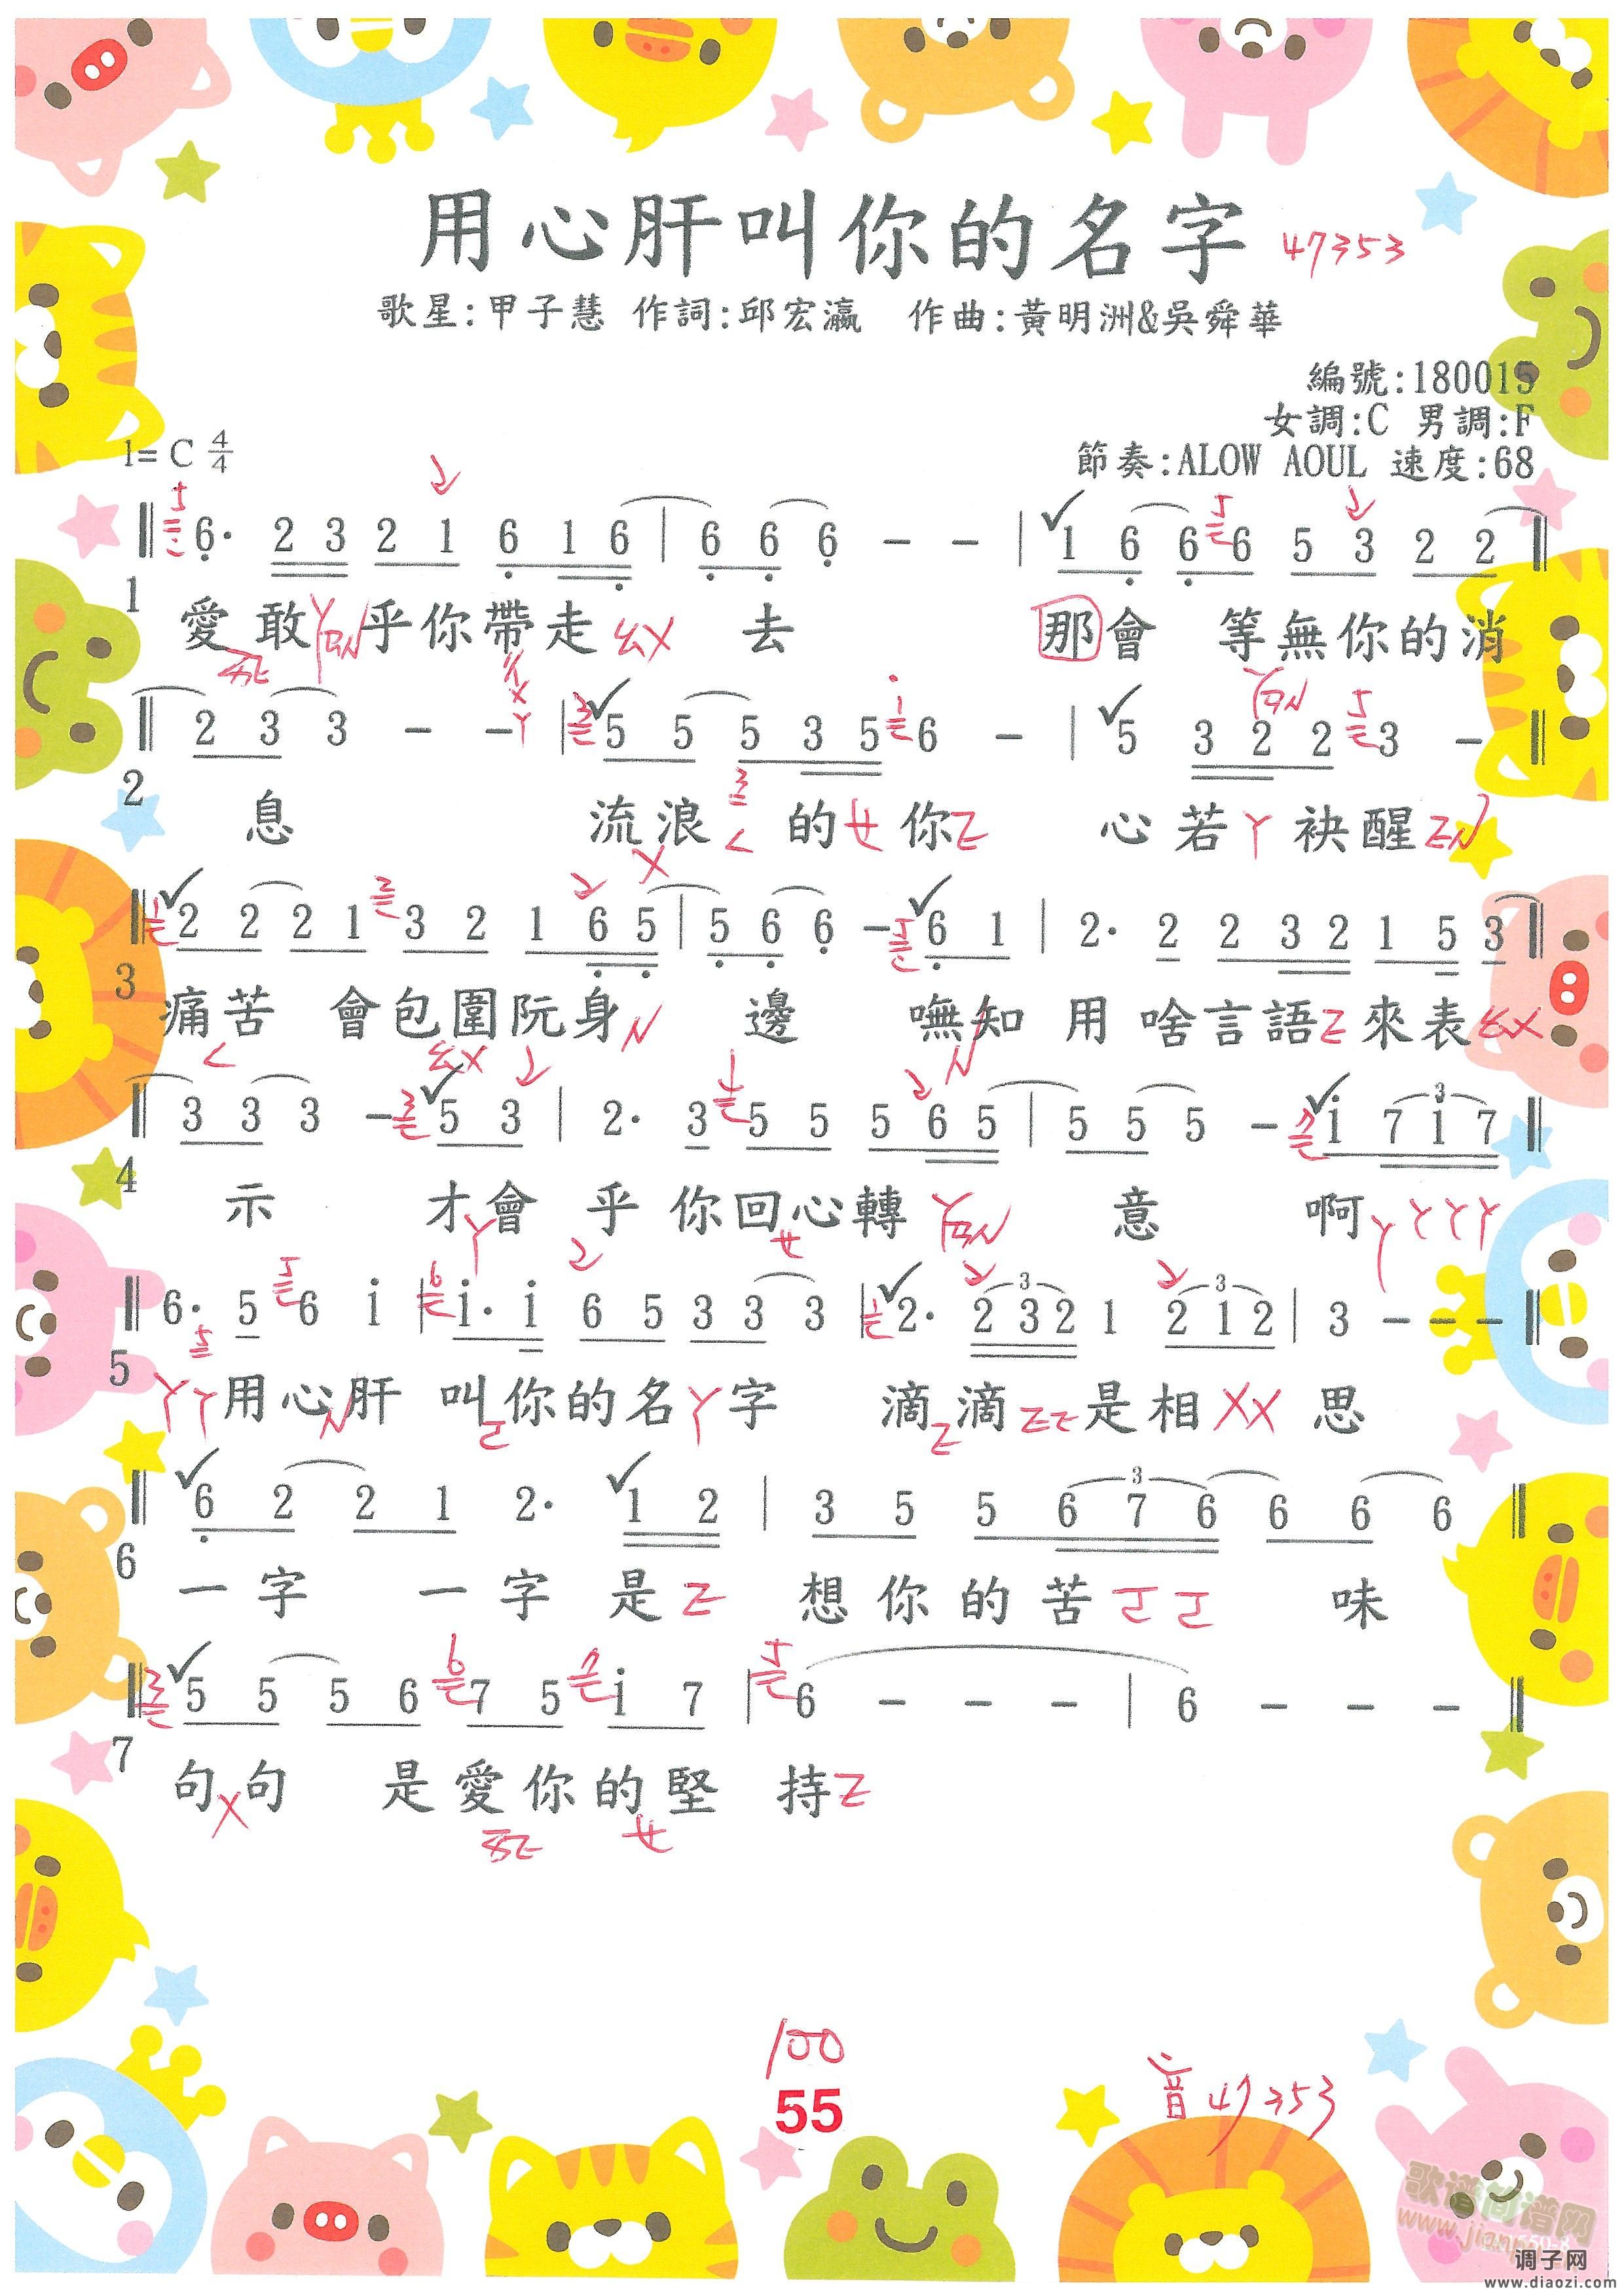 用心肝叫你的名字 47353
歌星:甲子慧 作詞:邱宏瀛 作曲:黃明洲&吳舜華
編號:180015
女調:C 男調:F
1=C 4/4
節奏:ALOW AOUL 速度:68
6· 2 3 2 1 6 1 6 | 6 6 6 - - | 1 6 6 6 5 3 2 2
1
愛敢乎你帶走 去 那會 等無你的消
2 3 3 - - | 5 5 5 3 5 6 - | 5 3 2 2 3 -
2
息 流浪 的 你 心若 袂醒
2 2 2 1 3 2 1 6 5 | 5 6 6 - 6 1 | 2· 2 2 3 2 1 5 3
3
痛苦 會包圍阮身 邊 嘸知 用 啥言語 來表
3 3 3 - 5 3 | 2· 3 5 5 5 6 5 | 5 5 5 - i 7 1 7
4
示 才會 乎 你回心轉 意 啊
6· 5 6 i | i· i 6 5 3 3 3 | 2· 2 3 2 1 2 1 2 | 3 - - -
5
用心肝 叫你的名 字 滴滴 是相 思
6 2 2 1 2· 1 2 | 3 5 5 6 7 6 6 6 6
6
一字 一字 是 想你的苦 味
5 5 5 6 7 5 i 7 | 6 - - - | 6 - - -
7
句句 是愛你的堅 持
100
55
音47353
歌谱简谱网
调子网
www.diaozi.com